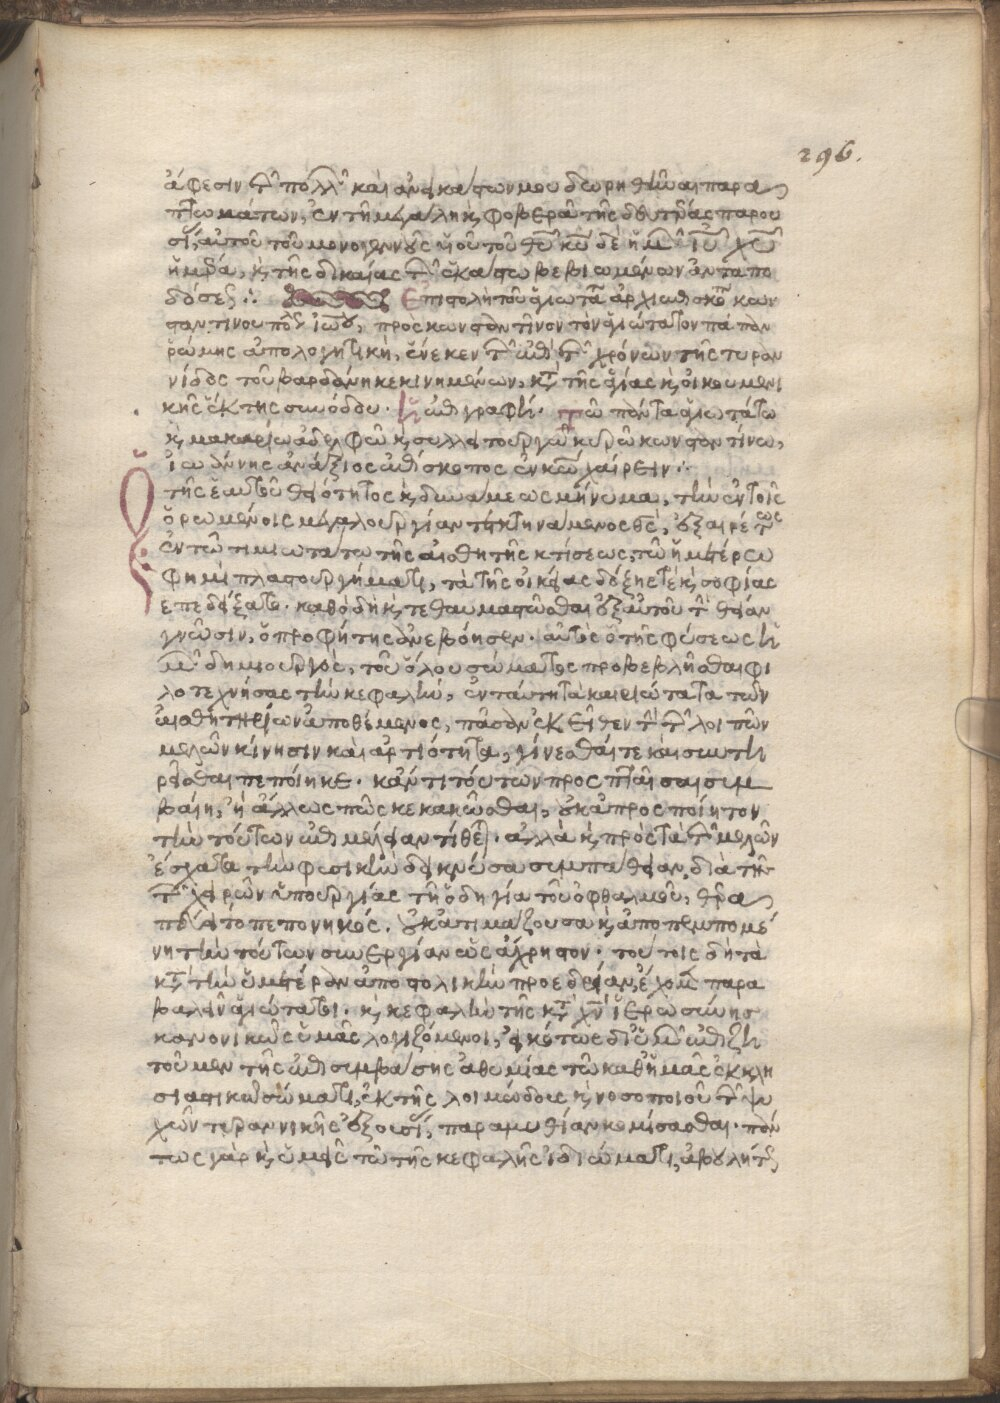 296.
ἄφεσιν τῶν πολλῶν καὶ ἀνεικάστων μου δωρηθῆναι παρα
πτωμάτων, ἐν τῇ μεγάλῃ καὶ φοβερᾷ τῆς δευτέρας παρου
σίας αὐτοῦ τοῦ μονογενοῦς υἱοῦ τοῦ θεοῦ κυρίου δὲ ἡμῶν ἰησοῦ χριστοῦ
ἡμέρᾳ, καὶ τῆς δικαίας τῶν ἑκάστῳ βεβιωμένων ἀνταπο
δόσεως ∴ Ἐπιστολὴ τοῦ ἁγιωτάτου ἀρχιεπισκόπου κων
σταντινουπόλεως ἰωάννου, πρὸς κωνσταντῖνον τὸν ἁγιώτατον πάπαν
ῥώμης ἀπολογητικὴ, ἕνεκεν τῶν ἐπὶ τῶν χρόνων τῆς τυραν
νίδος τοῦ βαρδάνη κεκινημένων, κατὰ τῆς ἁγίας καὶ οἰκουμενι
κῆς ἕκτης συνόδου. ἡ ἐπιγραφή. τῷ πάντα ἁγιωτάτῳ
καὶ μακαρίῳ ἀδελφῷ καὶ συλλειτουργῷ κυρῷ κωνσταντίνῳ,
ἰωάννης ἀνάξιος ἐπίσκοπος ἐν κυρίῳ χαίρειν ∴
τῆς ἑαυτοῦ θειότητος καὶ δυνάμεως μήνυμα, τὴν ἐν τοῖς
ὁρωμένοις μεγαλουργίαν τεκτηνάμενος θεὸς, ἐξαιρέτως
ἐν τῷ τιμιωτάτῳ τῆς αἰσθητῆς κτίσεως, τῷ ἡμετέρῳ
φημὶ πλαστουργήματι, τὰ τῆς οἰκείας δόξης τὲ καὶ σοφίας
ἐπεδείξατο. καθὸ δὴ καὶ τεθαυμαστῶσθαι ἐξ αὐτοῦ τὴν θείαν
γνῶσιν, ὁ προφήτης ἀνεβόησεν. αὐτὸς ὁ τῆς φύσεως ἡ
μῶν δημιουργὸς, τοῦ ὅλου σώματος προβεβλῆσθαι φι
λοτεχνήσας τὴν κεφαλὴν, ἐν ταύτῃ τὰ καιριώτατα τῶν
αἰσθητηρίων ἀποθέμενος, πᾶσαν ἐκεῖθεν τὴν τῶν λοιπῶν
μελῶν κίνησιν καὶ ἀρτιότητα, γίνεσθαί τε καὶ συντη
ρεῖσθαι πεποίηκε. κἄν τι τούτων πρὸς πταῖσαι συμ
βαίη, ἢ ἄλλως πῶς κεκακῶσθαι, οὐκ ἀπροσποίητον
τὴν τούτων ἐπιμέλειαν τίθεται. ἀλλὰ καὶ πρὸς τὰ τῶν μελῶν
ἔσχατα τὴν φυσικὴν δεικνύουσα συμπάθειαν, διὰ τῆς
τῶν χειρῶν ὑπουργίας τῇ ὁδηγίᾳ τοῦ ὀφθαλμοῦ, θερα
πεύει τὸ πεπονηκός. οὐκ ἀτιμάζουσα καὶ ἀποπεμπομέ
νη τὴν τούτων συνεργίαν ὡς ἄχρηστον. τούτοις δὴ τὰ
κατὰ τὴν ὑμετέραν ἀποστολικὴν προεδρείαν, ἔχομεν παρα
βαλεῖν ἁγιώτατοι. καὶ κεφαλὴν τῆς κατὰ χριστὸν ἱερωσύνης
κανονικῶς ὑμᾶς λογιζόμενοι, εἰκότως δι' ὑμῶν ἐπιζη
τοῦμεν τῆς ἐπισυμβάσης ἀθυμίας τῷ καθ' ἡμᾶς ἐκκλη
σιαστικῷ σώματι, ἐκ τῆς λοιμώδους καὶ νοσοποιοῦ τῶν ψυ
χῶν τυραννικῆς ἐξουσίας, παραμυθίαν κομίσασθαι. πάν
τως γὰρ καὶ ὑμεῖς τῷ τῆς κεφαλῆς ἰδιώματι, ἀβουλήτως